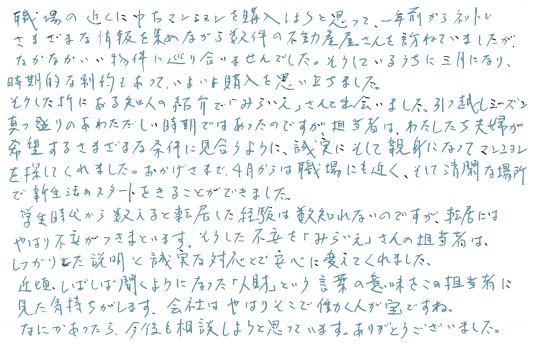 職場の近くに中古マンションを購入しようと思って、一年前からネットで
さまざまな情報を集めながら数件の不動産屋さんを訪ねていましたが、
なかなかいい物件に巡り合いませんでした。そうしているうちに三月になり、
時期的な制約もあって、いよいよ購入を思い立ちました。
そうした折にある知人の紹介で「みらいえ」さんと出会いました。引っ越しシーズン
真っ盛りのあわただしい時期ではあったのですが、担当者は、わたしたち夫婦が
希望するさまざまな条件に見合うように、誠実にそして親身になってマンション
を探してくれました。おかげさまで、4月からは職場にも近く、そして清閑な場所
で新生活のスタートをきることができました。
学生時代から数えると転居した経験は数知れないのですが、転居には
やはり不安がつきまといます。そうした不安を「みらいえ」さんの担当者は、
しっかりとした説明と誠実な対応とで安心に変えてくれました。
近頃、しばしば聞くようになった「人財」という言葉の意味をこの担当者に
見た気持ちがします。会社はやはりそこで働く人が宝ですね。
なにかあったら、今後も相談しようと思っています。ありがとうございました。